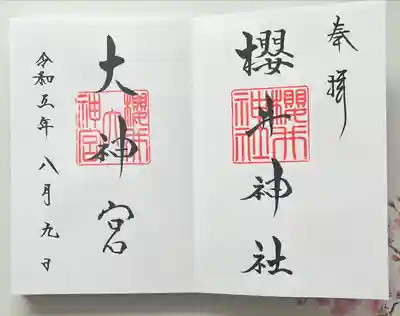 奉拝
櫻井神社
櫻井神社
大神宮
櫻井大神宮
令和五年八月九日